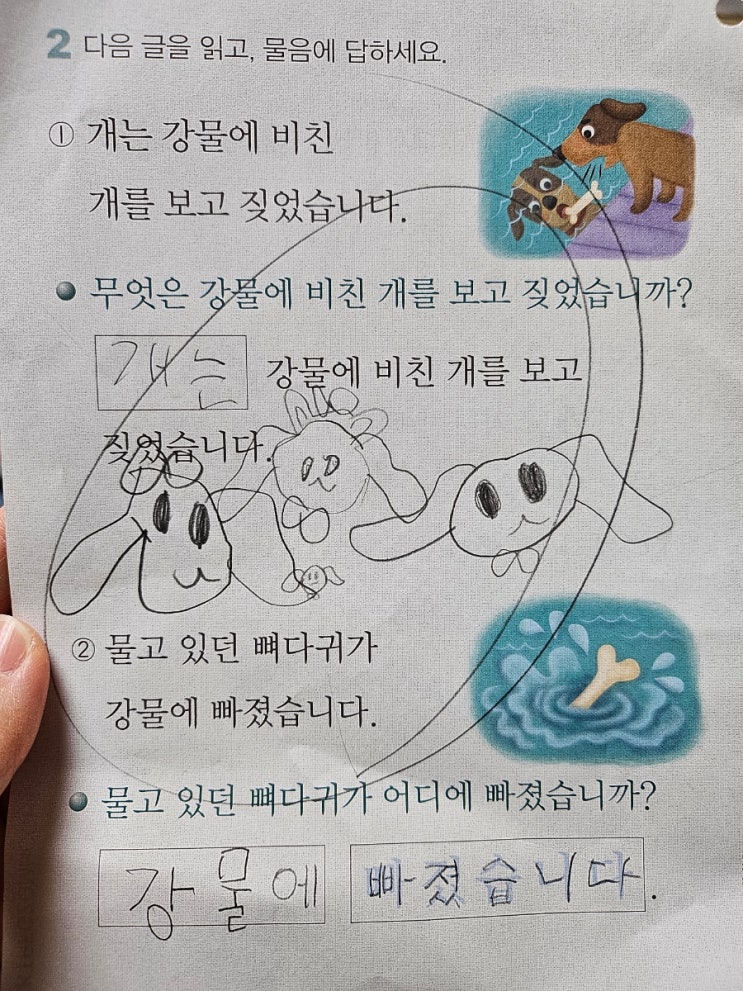 2 다음 글을 읽고, 물음에 답하세요.
① 개는 강물에 비친
개를 보고 짖었습니다.
무엇은 강물에 비친 개를 보고 짖었습니까?
개는 강물에 비친 개를 보고
짖었습니다.
② 물고 있던 뼈다귀가
강물에 빠졌습니다.
물고 있던 뼈다귀가 어디에 빠졌습니까?
강물에 빠졌습니다.